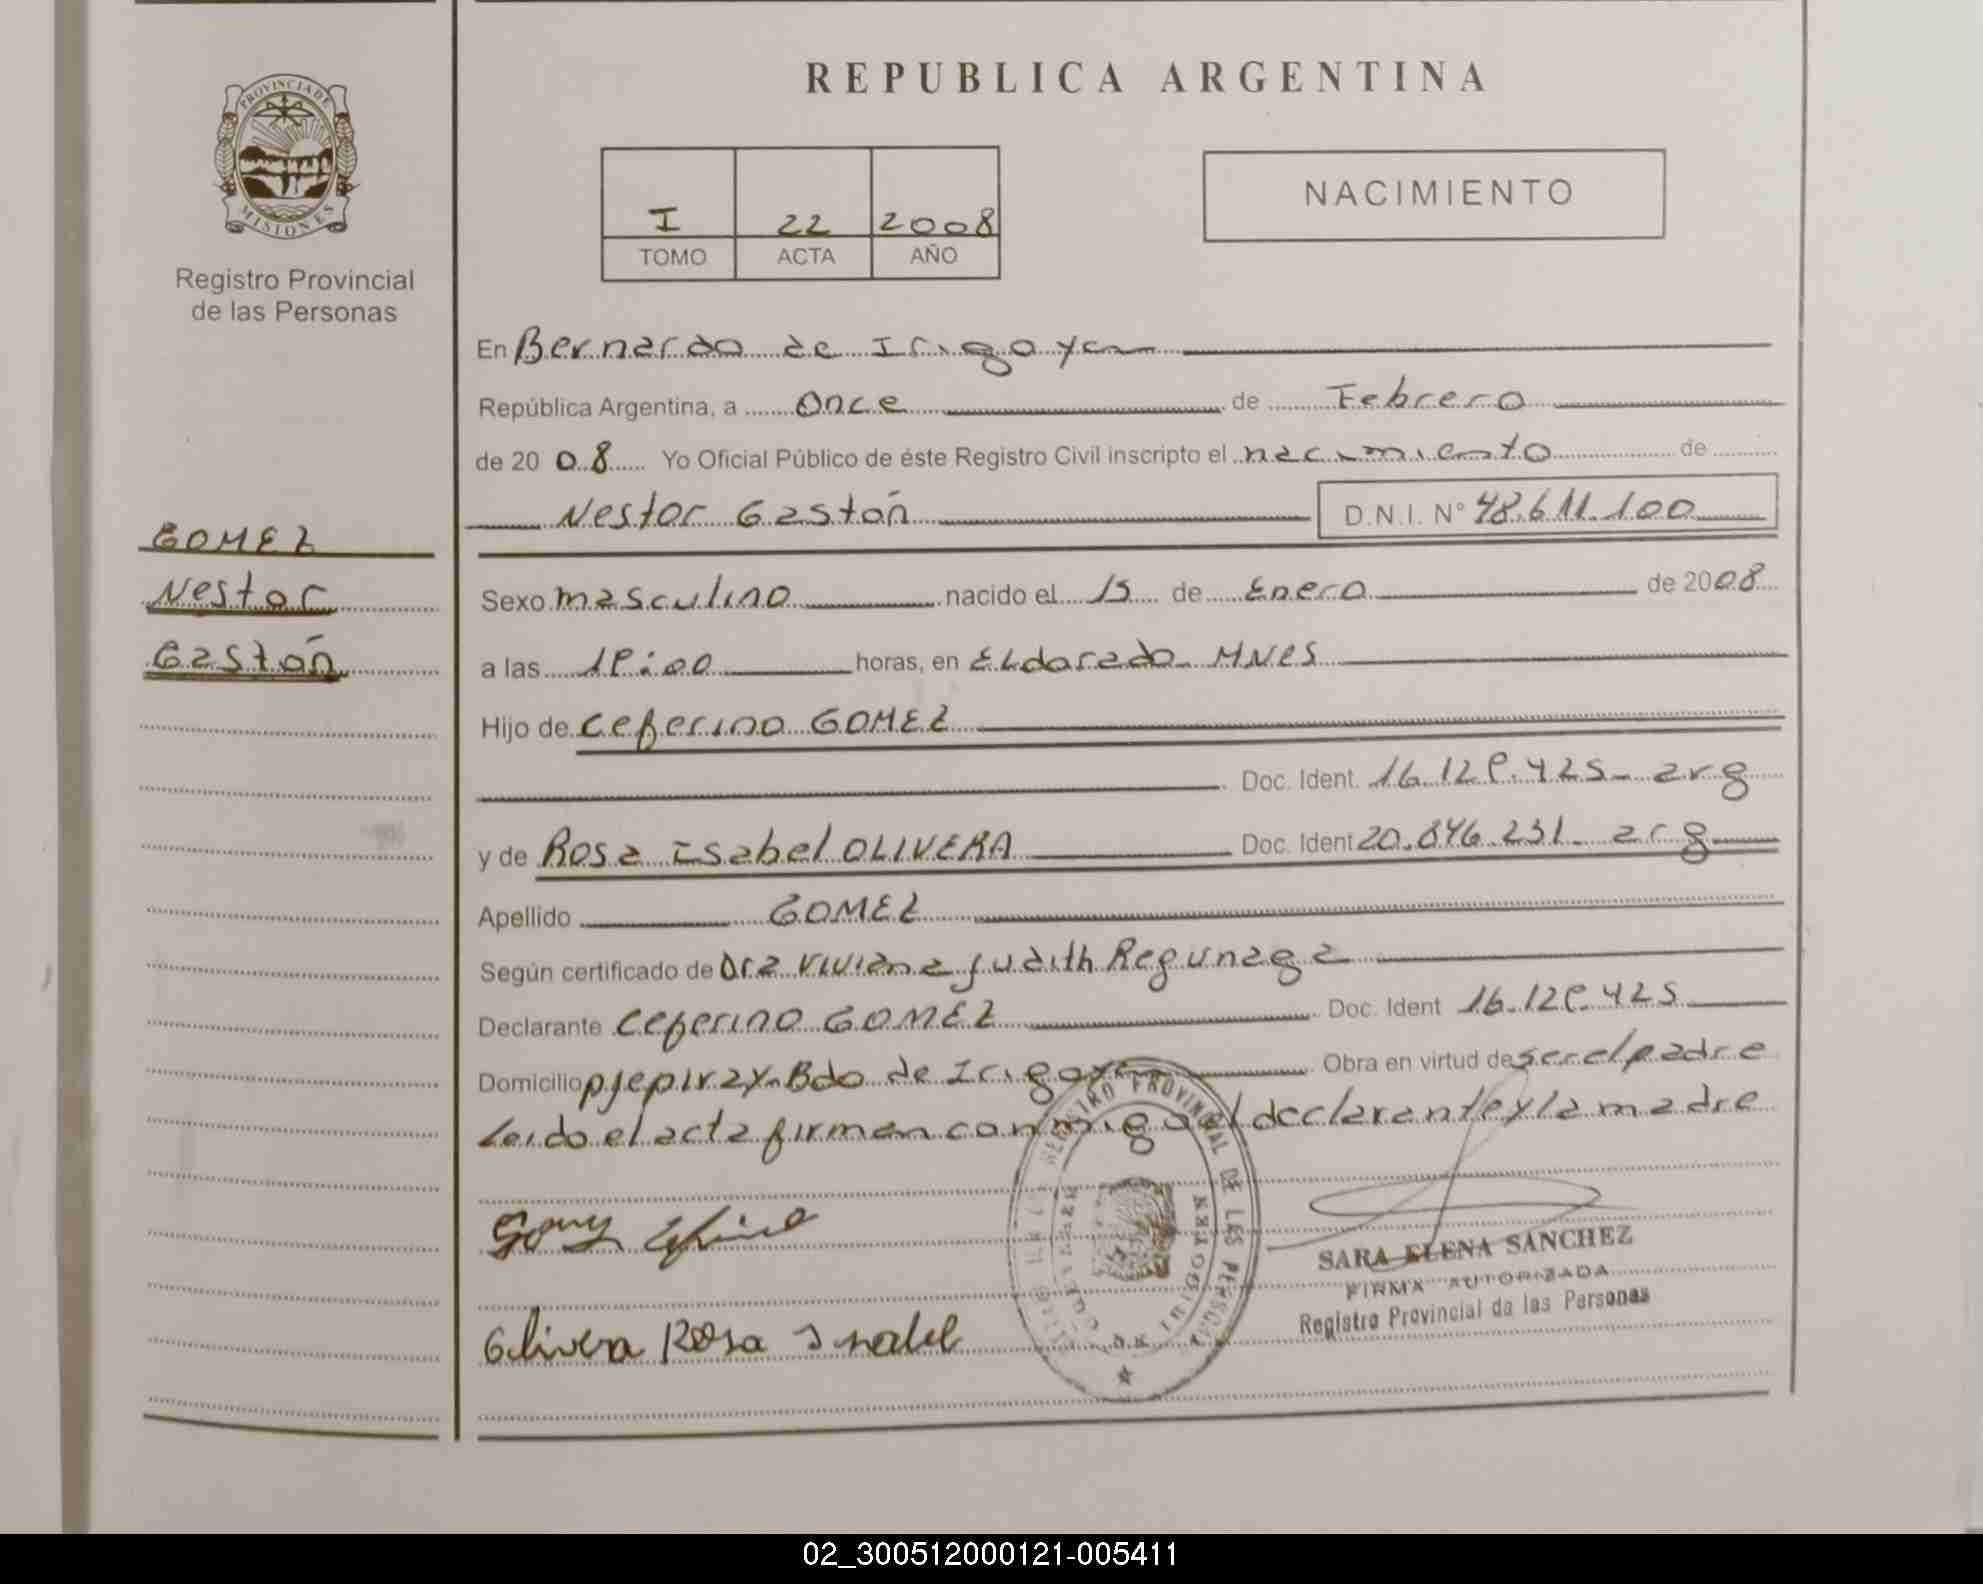 PROVINCIA DE
MISIONES
Registro Provincial
de las Personas
GOMEZ
Nestor
Gastón
REPUBLICA ARGENTINA
I 22 2008
TOMO ACTA AÑO
NACIMIENTO
En Bernardo de Irigoyen
República Argentina, a Once de Febrero
de 2008 Yo Oficial Público de éste Registro Civil inscripto el nacimiento de
Nestor Gastón D.N.I. Nº 48.611.100
Sexo masculino nacido el 15 de Enero de 2008
a las horas, en ELdorado MNES
Hijo de Ceferino GOMEZ
Doc. Ident. arg
y de Rosa Isabel OLIVERA Doc. Ident 20.846.231 - arg
Apellido GOMEZ
Según certificado de Dra Viviana Judith Regunaga
Declarante Ceferino GOMEZ Doc. Ident
Domicilio pjepiray-Bdo de Irigoyen Obra en virtud de ser el padre
Leido el acta firman conmigo el declarante y la madre
REGISTRO PROVINCIAL DE LAS PERSONAS
SARA ELENA SANCHEZ
FIRMA AUTORIZADA
Registro Provincial de las Personas
Olivera Rosa Isabel
02_300512000121-005411